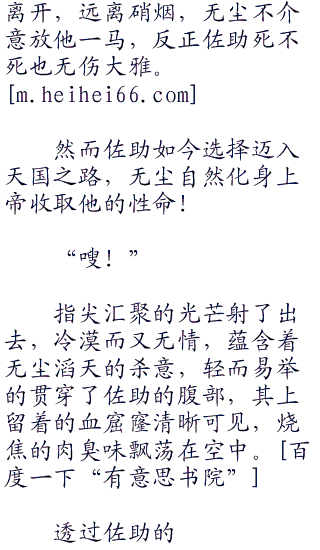 离开，远离硝烟，无尘不介
意放他一马，反正佐助死不
死也无伤大雅。
[m.heihei66.com]
然而佐助如今选择迈入
天国之路，无尘自然化身上
帝收取他的性命！
“嗖！”
指尖汇聚的光芒射了出
去，冷漠而又无情，蕴含着
无尘滔天的杀意，轻而易举
的贯穿了佐助的腹部，其上
留着的血窟窿清晰可见，烧
焦的肉臭味飘荡在空中。[百
度一下“有意思书院”]
透过佐助的